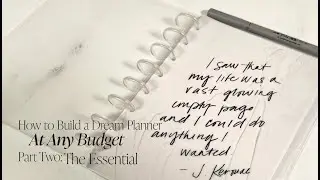 I saw that
my life was a
vast glowing
empty page
and I could do
anything I
wanted
- J Kerouac
How to Build a Dream Planner
At Any Budget
Part Two: The Essential